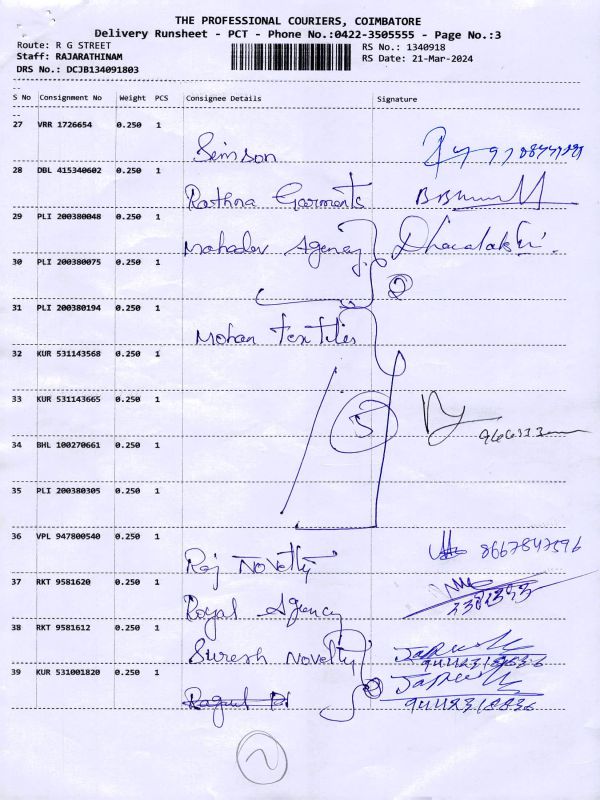 THE PROFESSIONAL COURIERS, COIMBATORE
Delivery Runsheet - PCT - Phone No.:0422-3505555 - Page No.:3
Route: R G STREET
RS No.: 1340918
Staff: RAJARATHINAM
RS Date: 21-Mar-2024
DRS No.: DCJB134091803
S No Consignment No Weight PCS Consignee Details Signature
27 VRR 1726654 0.250 1
Simson
28 DBL 415340602 0.250 1
Rathna Garments
29 PLI 200380048 0.250 1
Mahadev Agency
30 PLI 200380075 0.250 1
2
31 PLI 200380194 0.250 1
Mohan Textiles
32 KUR 531143568 0.250 1
33 KUR 531143665 0.250 1
5
34 BHL 100270661 0.250 1
35 PLI 200380305 0.250 1
36 VPL 947800540 0.250 1
Raj Novelty 8667847596
37 RKT 9581620 0.250 1
Royal Agency
38 RKT 9581612 0.250 1
Suresh Novelty
39 KUR 531001820 0.250 1
2
9442318836
2